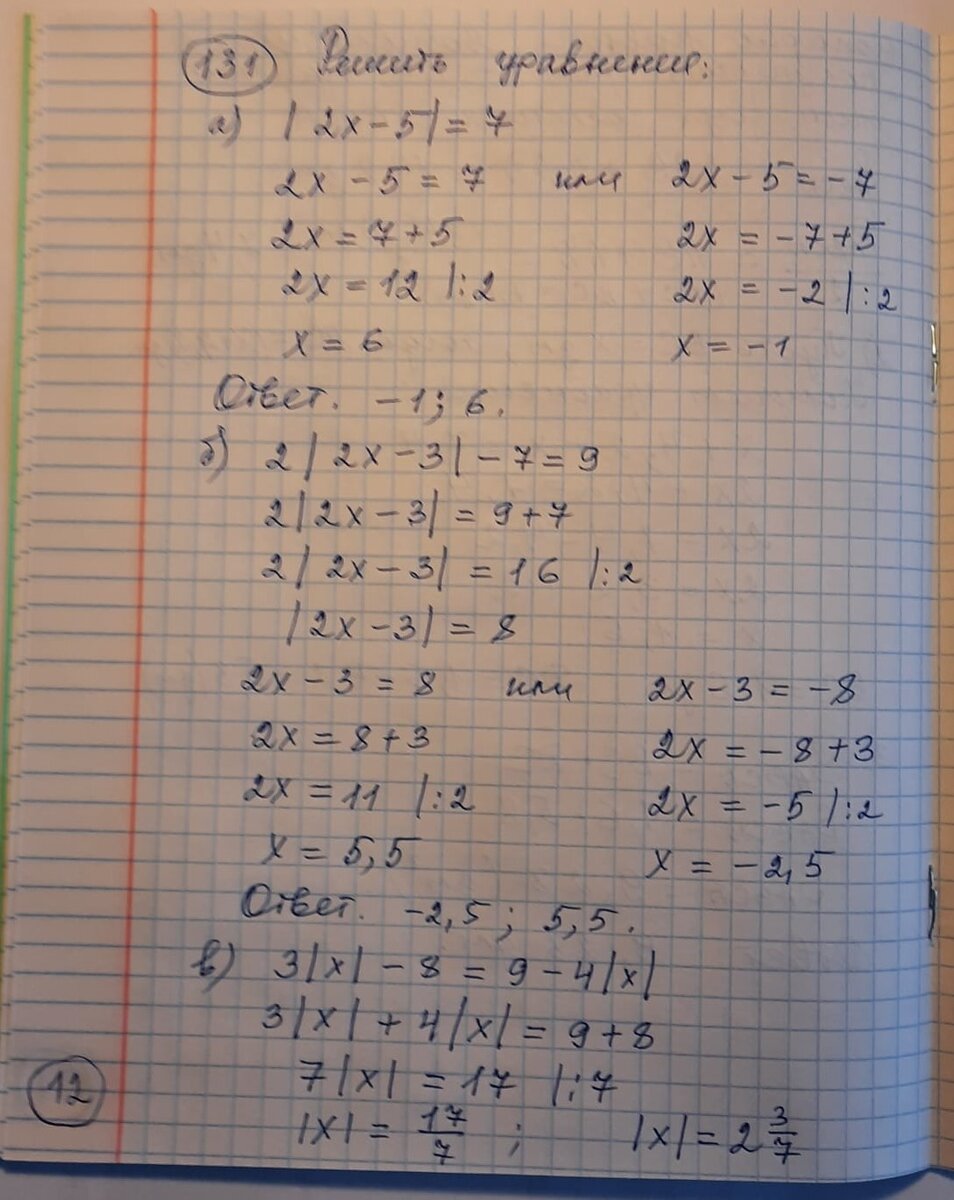 131 Решить уравнение:
а) |2x-5|=7
2x-5=7 или 2x-5=-7
2x=7+5 2x=-7+5
2x=12 |:2 2x=-2 |:2
x=6 x=-1
Ответ. -1; 6.
б) 2|2x-3|-7=9
2|2x-3|=9+7
2|2x-3|=16 |:2
|2x-3|=8
2x-3=8 или 2x-3=-8
2x=8+3 2x=-8+3
2x=11 |:2 2x=-5 |:2
x=5,5 x=-2,5
Ответ. -2,5; 5,5.
в) 3|x|-8=9-4|x|
3|x|+4|x|=9+8
12 7|x|=17 |:7
|x|=17/7; |x|=2 3/7